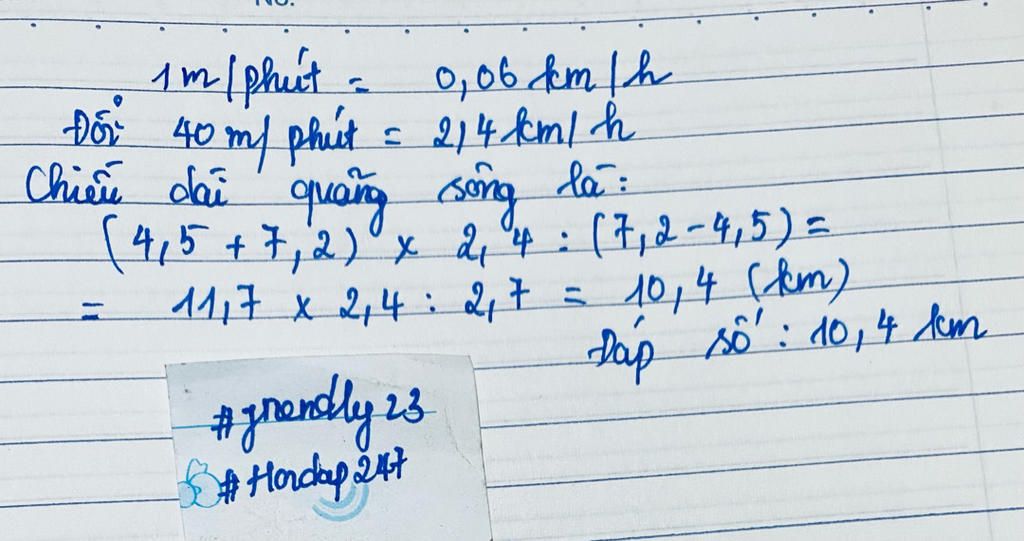 No.
1m/phút = 0,06 km/h
Đổi 40 m/phút = 2,4 km/h
Chiều dài quãng sông là:
(4,5 + 7,2) x 2,4 : (7,2 - 4,5) =
= 11,7 x 2,4 : 2,7 = 10,4 (km)
Đáp số : 10,4 km
#grendly23
#Hoidap247